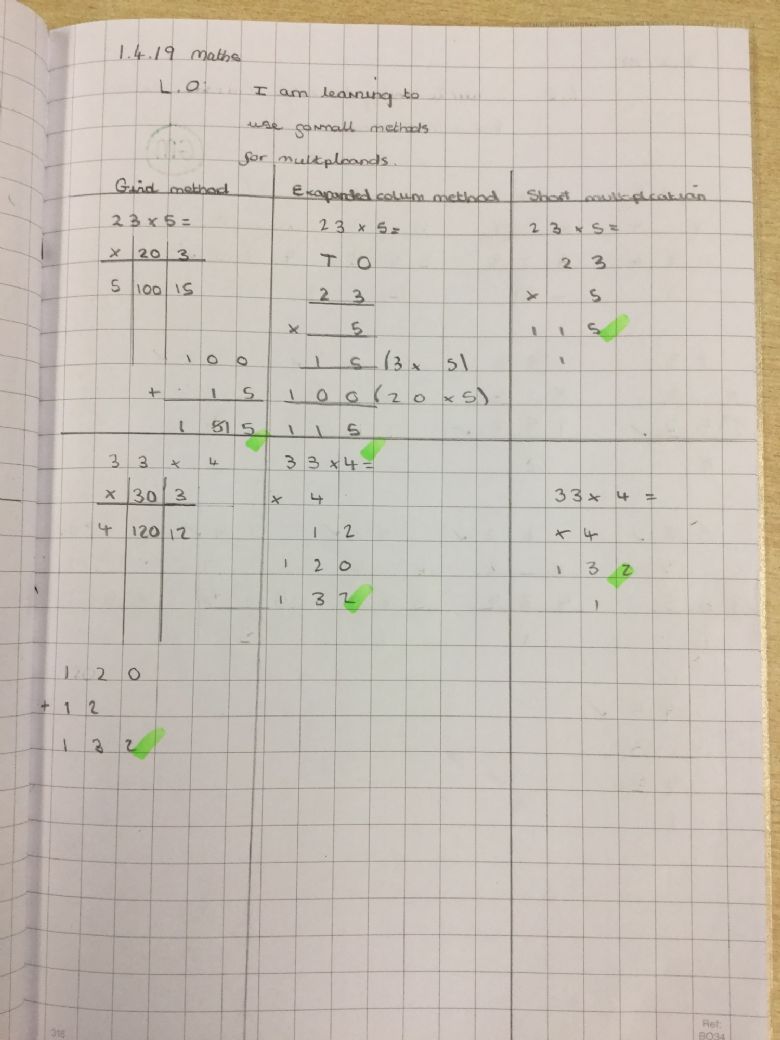 1.4.19 maths
L.O: I am learning to
use formall methods
for multplcands.
Grid method
23 x 5 =
x 20 3
5 100 15
1 0 0
+ 1 5
1 1 5
Exapanded colum method
23 x 5 =
T O
2 3
x 5
1 5 (3 x 5)
1 0 0 (20 x 5)
1 1 5
Short multiplication
23 x 5 =
2 3
x 5
1 1 5
1
3 3 x 4
x 30 3
4 120 12
1 2 0
+ 1 2
1 3 2
3 3 x 4 =
x 4
1 2
1 2 0
1 3 2
33 x 4 =
x 4
1 3 2
1
316
Ref:
BO34